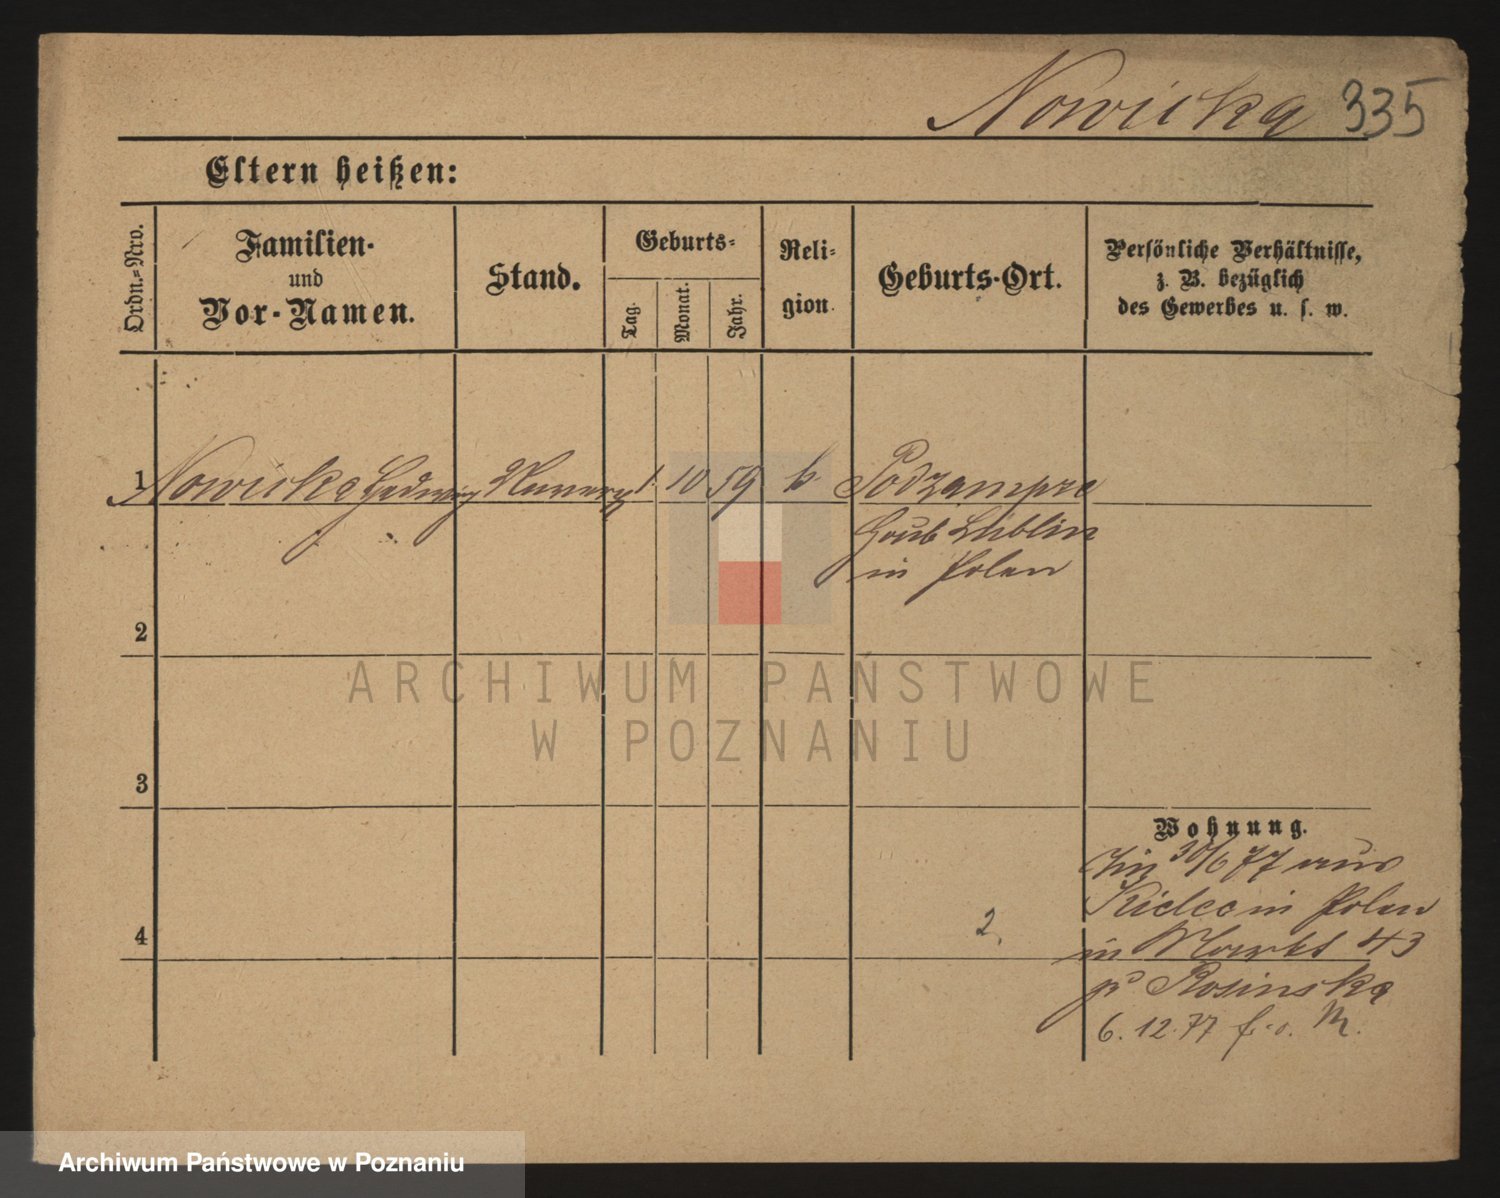 Nowicka 335
Eltern heißen:
Ordn.=Nro.
Familien-
und
Vor-Namen.
Stand.
Geburts=
Tag.
Monat.
Jahr.
Reli=
gion.
Geburts-Ort.
Persönliche Verhältnisse,
z. B. bezüglich
des Gewerbes u. s. w.
1 Nowicka Hedwig 1. 10 59 k. Podzampze
Goub Lublin
in Polen
2
ARCHIWUM PAŃSTWOWE
W POZNANIU
3
Wohnung.
30/6 77 aus
Kielce in Polen
2,
4
in Markt 43
Rosinska
6. 12. 77
Archiwum Państwowe w Poznaniu